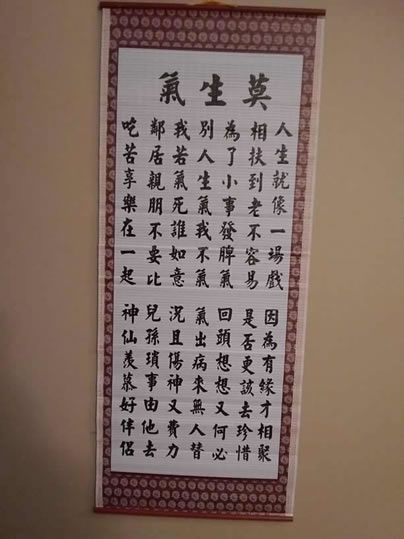 莫生氣
人生就像一場戲
相扶到老不容易
為了小事發脾氣
別人生氣我不氣
我若氣死誰如意
鄰居親朋不要比
吃苦享樂在一起
因為有緣才相聚
是否更該去珍惜
回頭想想又何必
氣出病來無人替
況且傷神又費力
兒孫瑣事由他去
神仙羨慕好伴侶